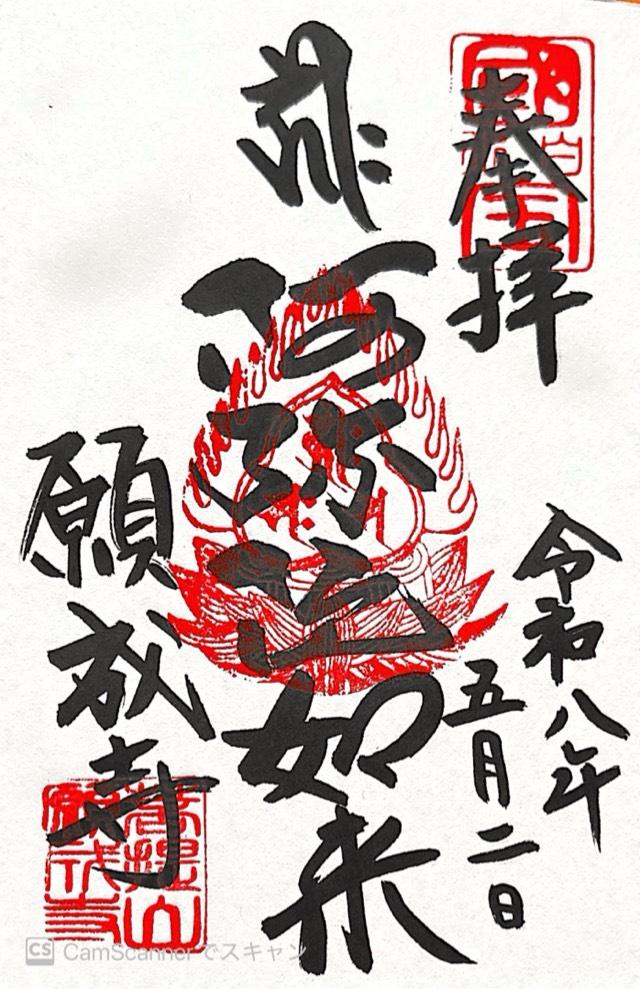 奉拝
令和八年
五月二日
阿弥陀如来
願成寺
菩提山
願成寺
CS CamScanner でスキャン